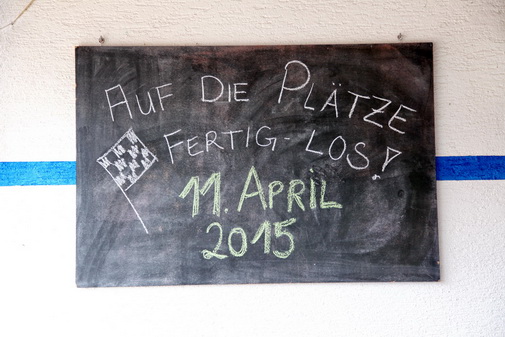 AUF DIE PLÄTZE
FERTIG-LOS!
11. APRIL
2015